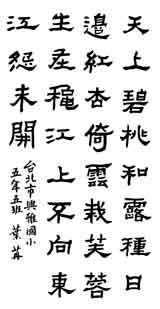 天上碧桃和露種日
邊紅杏倚雲栽芙蓉
生在穐江上不向東
江怨未開
台北市興雅國小
五年五班 葉